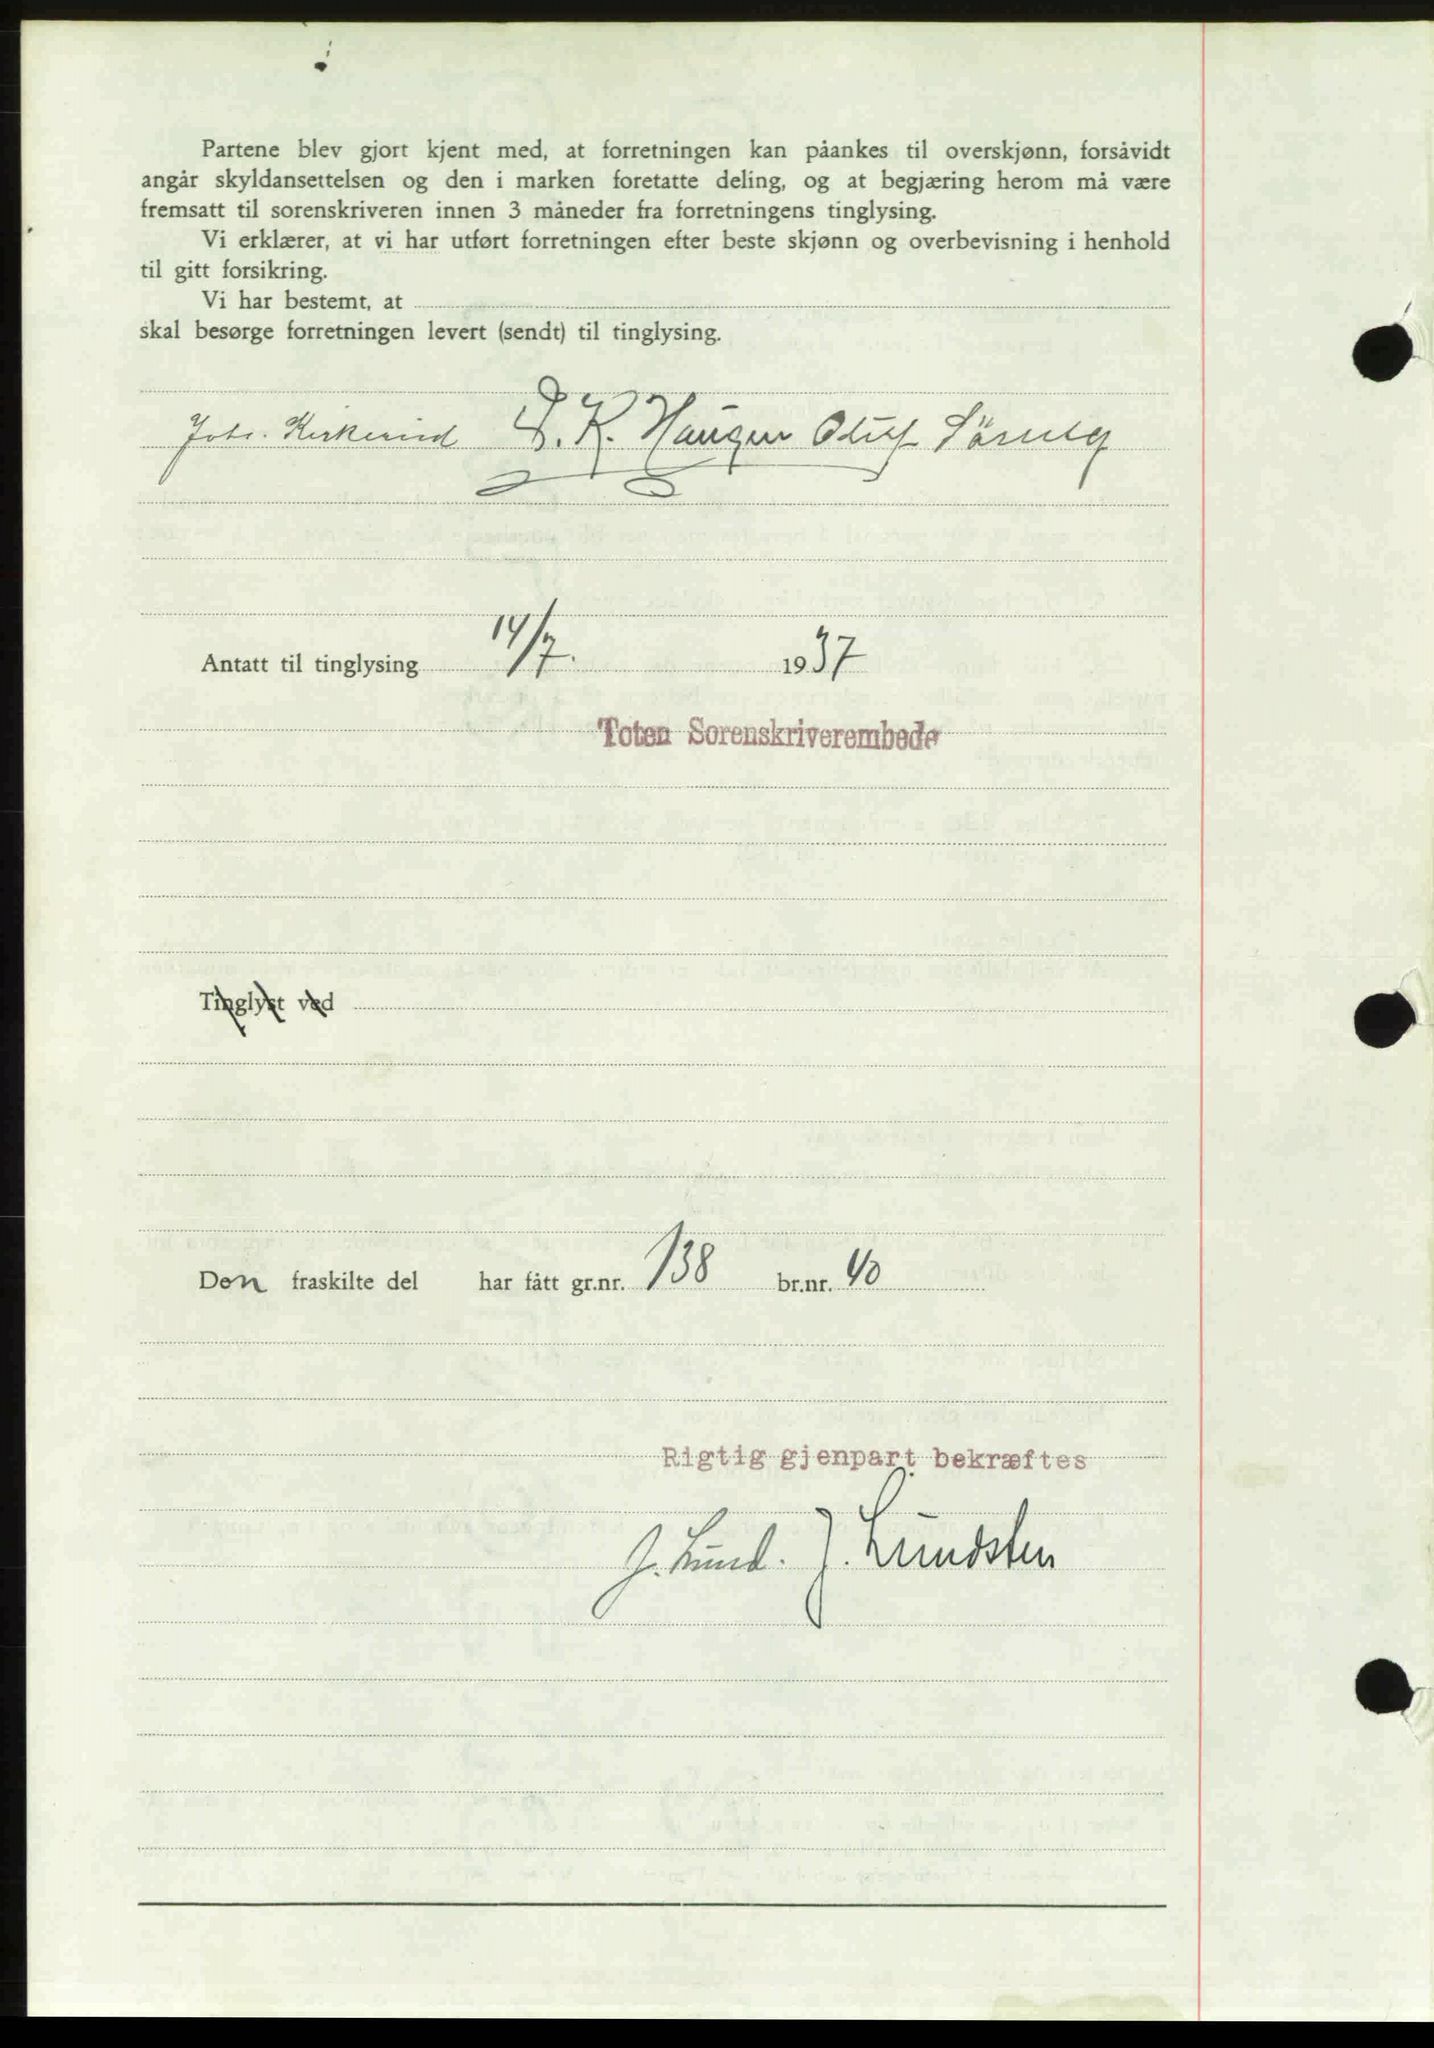 Partene blev gjort kjent med, at forretningen kan påankes til overskjønn, forsåvidt
angår skyldansettelsen og den i marken foretatte deling, og at begjæring herom må være
fremsatt til sorenskriveren innen 3 måneder fra forretningens tinglysing.
Vi erklærer, at vi har utført forretningen efter beste skjønn og overbevisning i henhold
til gitt forsikring.
Vi har bestemt, at
skal besørge forretningen levert (sendt) til tinglysing.
Joh. Kirkerud D. K. Haugen Oluf
Antatt til tinglysing 14/7. 1937
Toten Sorenskriverembede
Tinglyst ved
Den fraskilte del har fått gr.nr. 138 br.nr. 40
Rigtig gjenpart bekræftes
J. Lund. J. Lundsten